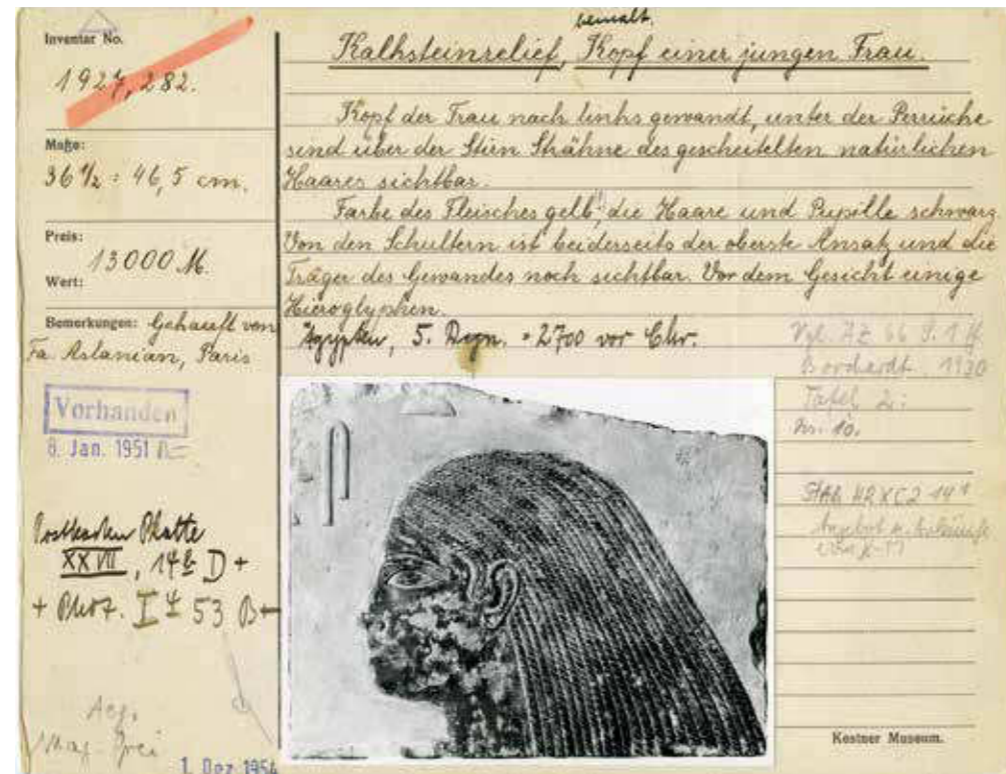 Inventar No.
1927, 282.
Maße:
36 1/2 : 46,5 cm.
Preis:
13000 M.
Wert:
Bemerkungen: Gekauft von
Fa. Aslanian, Paris
Vorhanden
8. Jan. 1951
Postkarten Platte
XXVII, 14 D +
+ Phot. I 53 B
Aeg.
Mag.
1. Dez. 1954
bemalt.
Kalksteinrelief, Kopf einer jungen Frau.
Kopf der Frau nach links gewandt, unter der Perrücke
sind über der Stirn Strähne des gescheitelten natürlichen
Haares sichtbar.
Farbe des Fleisches gelb, die Haare und Pupille schwarz
Von den Schultern ist beiderseits der oberste Ansatz und die
Träger des Gewandes noch sichtbar. Vor dem Gesicht einige
Hieroglyphen.
Ägypten, 5. Dyn. = 2700 vor Chr.
Vgl. AZ 66 S. 1 ff
Borchardt, 1930
Tafel 2:
Nr. 10.
Kestner Museum.